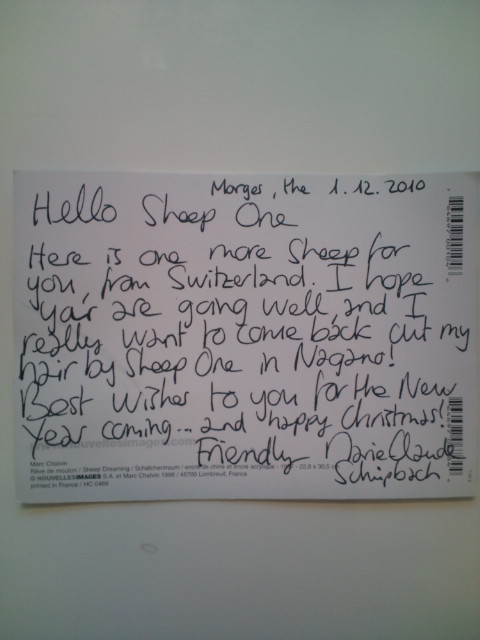 Morges, the 1.12.2010
Hello Sheep One
Here is one more Sheep for
you, from Switzerland. I hope
you are going well, and I
really want to come back cut my
hair by Sheep One in Nagano!
Best Wishes to you for the New
Year coming... and happy Christmas!
Friendly MarieClaude
Schüpbach
www.nouvellesimages.com
Marc Chalvin
Rêve de mouton / Sheep Dreaming / Schäfchentraum / encre de chine et encre acrylique - 22,8 x 30,5 cm
© NOUVELLESIMAGES S.A. et Marc Chalvin 1998 / 45700 Lombreuil, France
printed in France / HC 0469